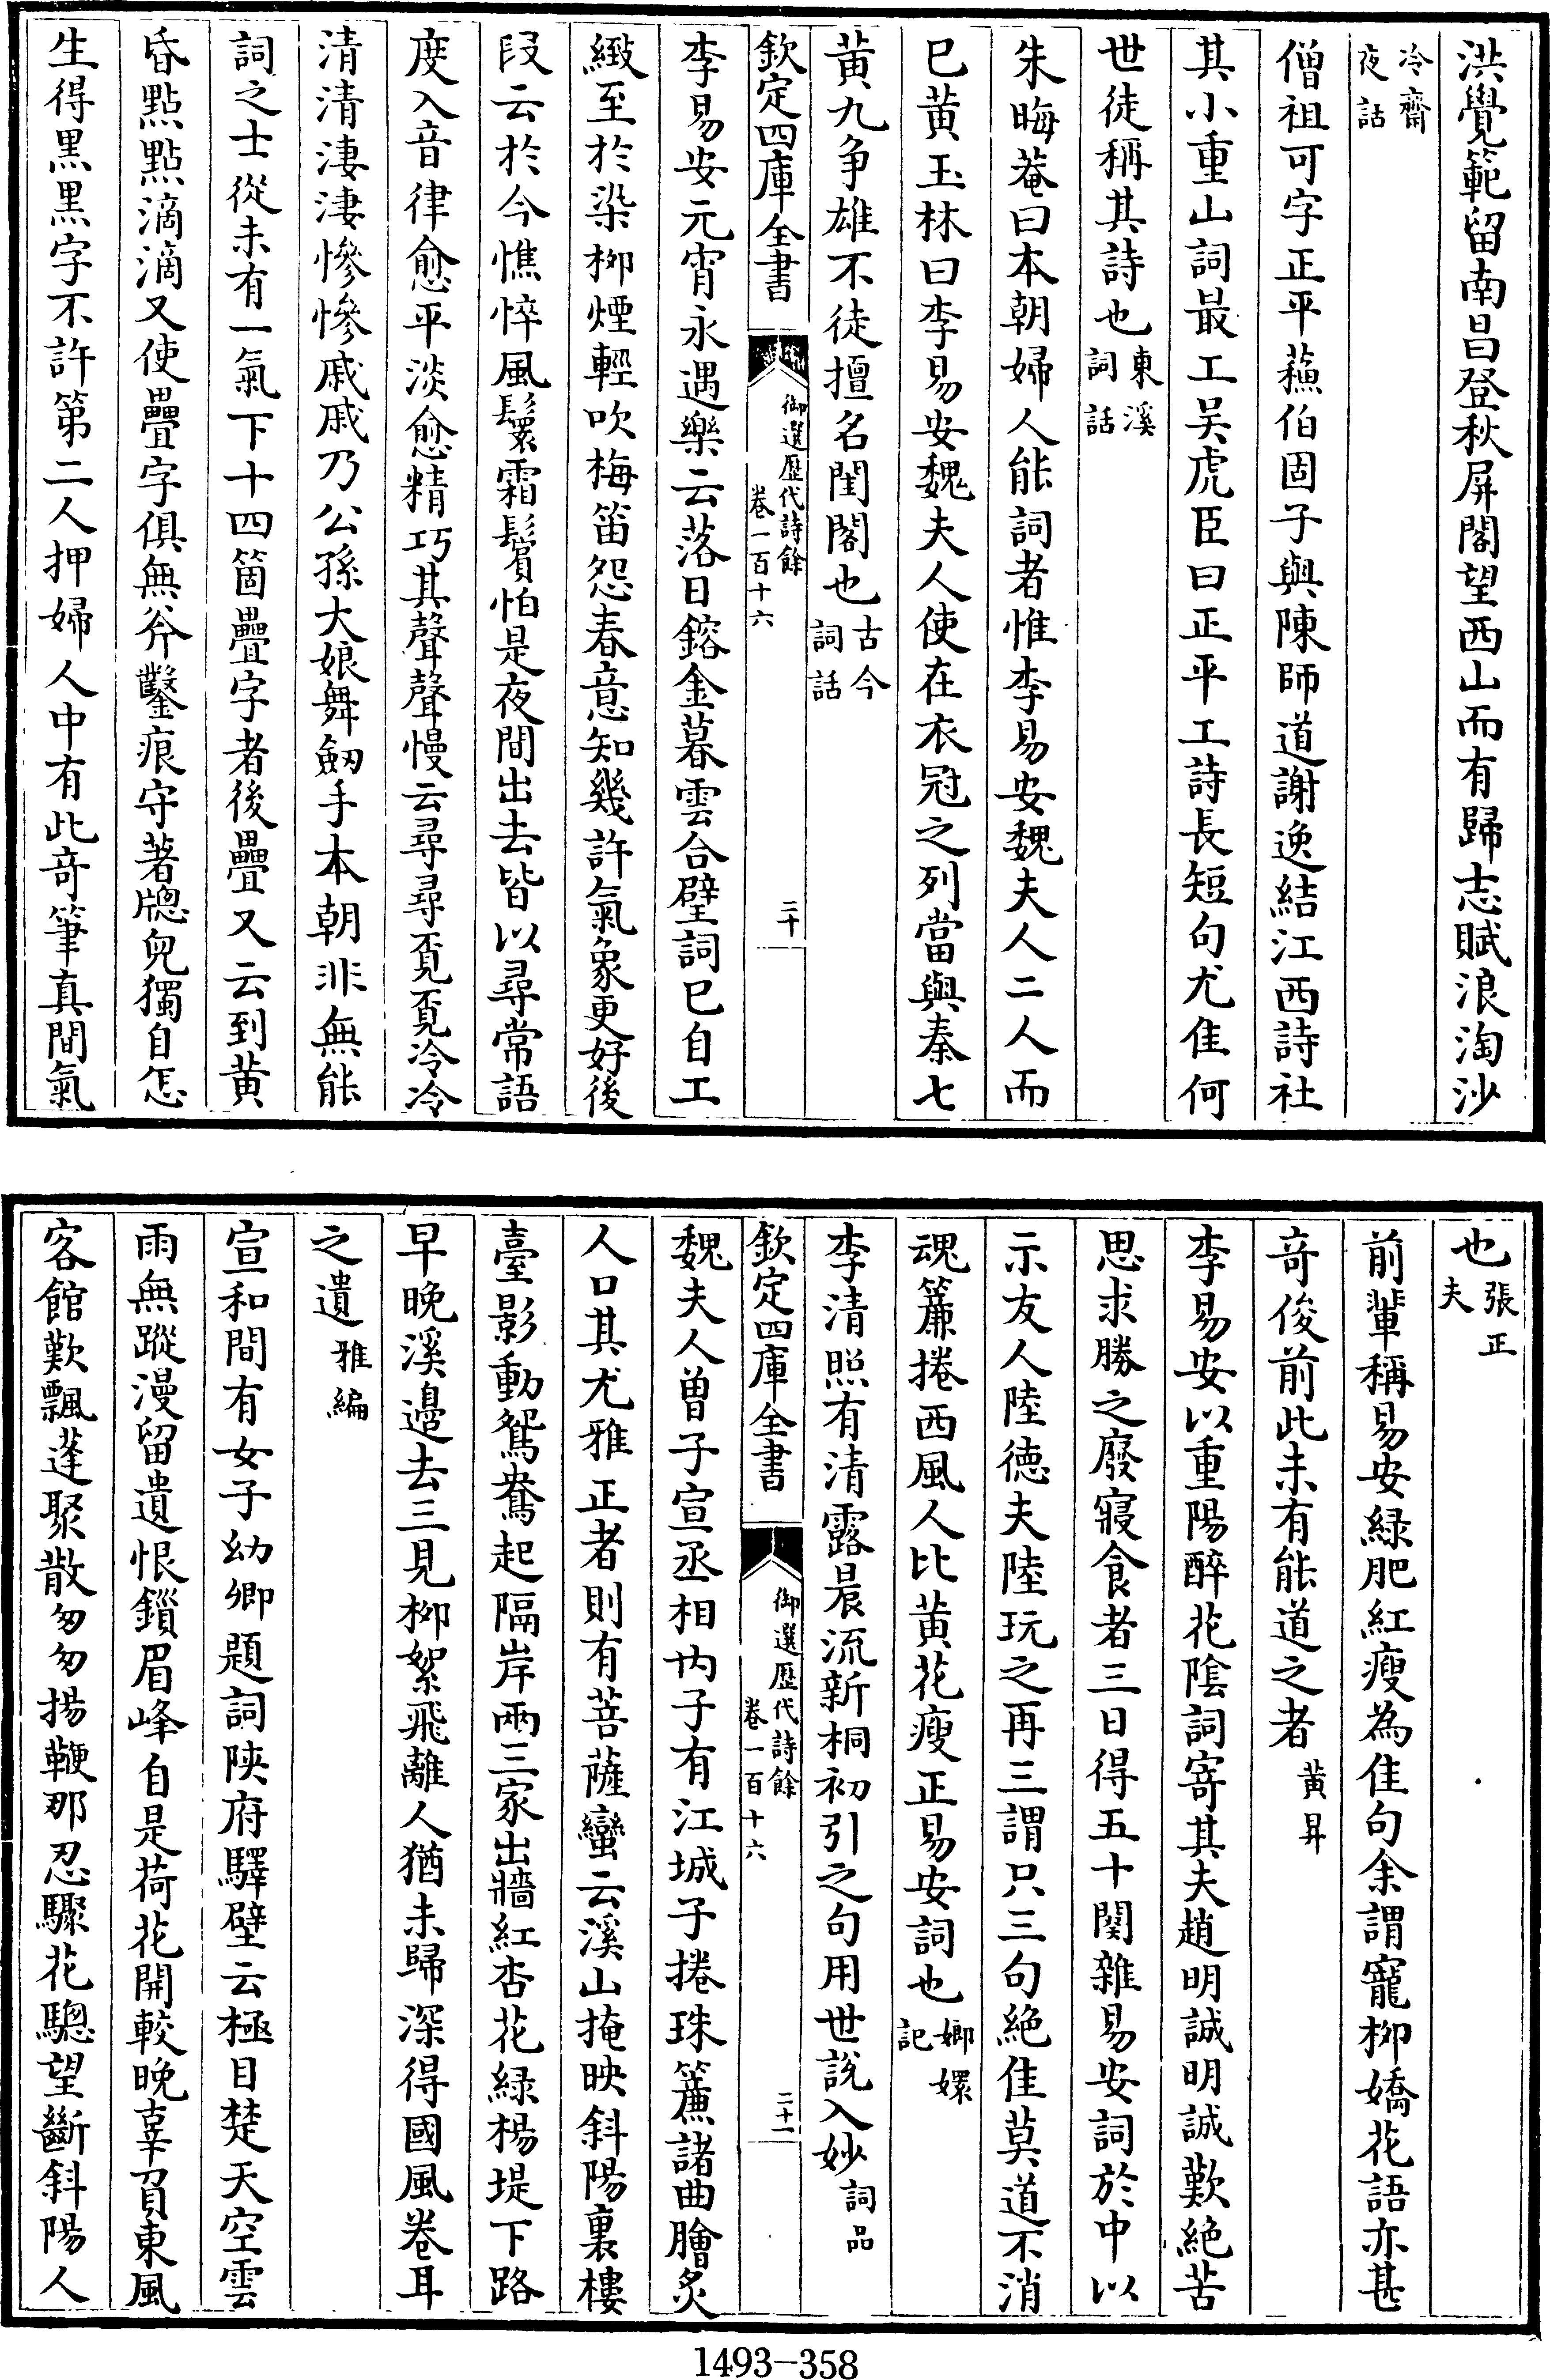 洪覺範留南昌登秋屏閣望西山而有歸志賦浪淘沙
冷齋夜話
僧祖可字正平蘓伯固子與陳師道謝逸結江西詩社
其小重山詞最工吴虎臣曰正平工詩長短句尤佳何
世徒稱其詩也東溪詞話
朱晦菴曰本朝婦人能詞者惟李易安魏夫人二人而
已黄玉林曰李易安魏夫人使在衣冠之列當與秦七
黄九争雄不徒擅名閨閣也古今詞話
欽定四庫全書
御選歷代詩餘
卷一百十六
二十
李易安元宵永遇樂云落日鎔金暮雲合璧詞已自工
緻至於染柳煙輕吹梅笛怨春意知幾許氣象更好後
段云於今憔悴風鬟霜鬢怕是夜間出去皆以尋常語
度入音律愈平淡愈精巧其聲聲慢云尋尋覔覔冷冷
清清淒淒慘慘戚戚乃公孫大娘舞劒手本朝非無能
詞之士從未有一氣下十四箇疊字者後疊又云到黄
昏點點滴滴又使疊字俱無斧鑿痕守著牕兒獨自怎
生得黑黑字不許第二人押婦人中有此竒筆真間氣
也張正夫
前輩稱易安緑肥紅瘦為佳句余謂寵柳嬌花語亦甚
竒俊前此未有能道之者黄昇
李易安以重陽醉花陰詞寄其夫趙明誠明誠歎絶苦
思求勝之廢寢食者三日得五十闋雜易安詞於中以
示友人陸德夫陸玩之再三謂只三句絶佳莫道不消
魂簾捲西風人比黄花瘦正易安詞也嫏嬛記
李清照有清露晨流新桐初引之句用世説入妙詞品
欽定四庫全書
御選歷代詩餘
卷一百十六
二十一
魏夫人曾子宣丞相内子有江城子捲珠簾諸曲膾炙
人口其尤雅正者則有菩薩蠻云溪山掩映斜陽裏樓
臺影動鴛鴦起隔岸兩三家出牆紅杏花緑楊堤下路
早晚溪邊去三見柳絮飛離人猶未歸深得國風卷耳
之遺雅編
宣和間有女子幼卿題詞陝府驛壁云極目楚天空雲
雨無蹤漫留遺恨鎖眉峰自是荷花開較晚辜負東風
客館歎飄蓬聚散匆匆揚鞭那忍驟花驄望斷斜陽人
1493-358